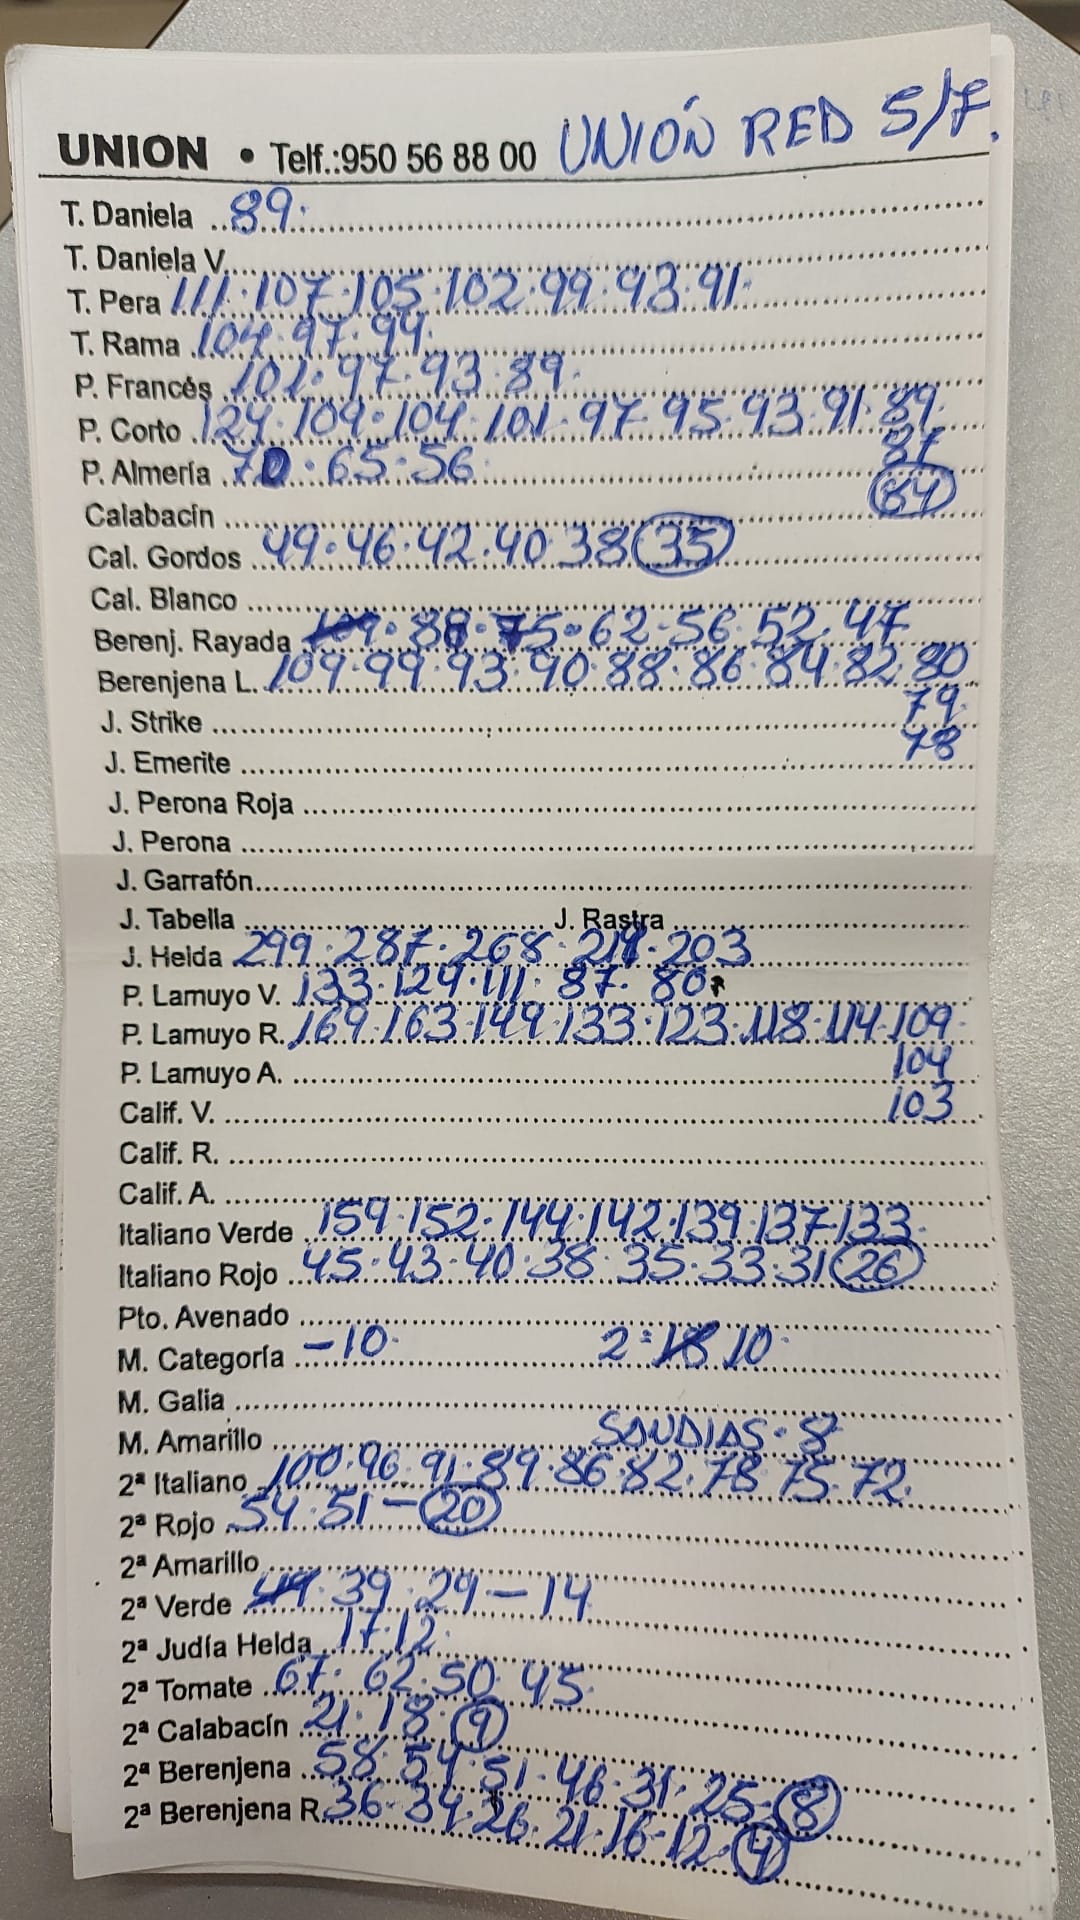 UNION • Telf.:950 56 88 00 UNIÓN RED 5/7.
T. Daniela 89.
T. Daniela V.
T. Pera 111.107.105.102.99.93.91.
T. Rama 104.97.94.
P. Francés 101.97.93.89.
P. Corto 124.109.104.101.97.95.93.91.89.
87
P. Almería 70.65.56
84
Calabacín
Cal. Gordos 49.46.42.40.38 35
Cal. Blanco
Berenj. Rayada 109.88.75.62.56.52.47
Berenjena L. 109.99.93.90.88.86.84.82.80
79
J. Strike
78
J. Emerite
J. Perona Roja
J. Perona
J. Garrafón
J. Tabella J. Rastra
J. Helda 299.287.268.219.203
P. Lamuyo V. 133.124.111.87.80
P. Lamuyo R. 169.163.149.133.123.118.114.109
104
P. Lamuyo A.
103
Calif. V.
Calif. R.
Calif. A.
Italiano Verde 159.152.144.142.139.137.133.
Italiano Rojo 45.43.40.38.35.33.31 26
Pto. Avenado
M. Categoría -10. 2=10.
M. Galia
M. Amarillo SANDIAS.8
2ª Italiano 100.96.91.89.86.82.78.75.72.
2ª Rojo 54.51-20
2ª Amarillo
2ª Verde 39.29-14
2ª Judía Helda 17.12.
2ª Tomate 67.62.50.45.
2ª Calabacín 21.18.9
2ª Berenjena 58.54.51.46.31.25.8
2ª Berenjena R. 36.34.26.21.16-12.4